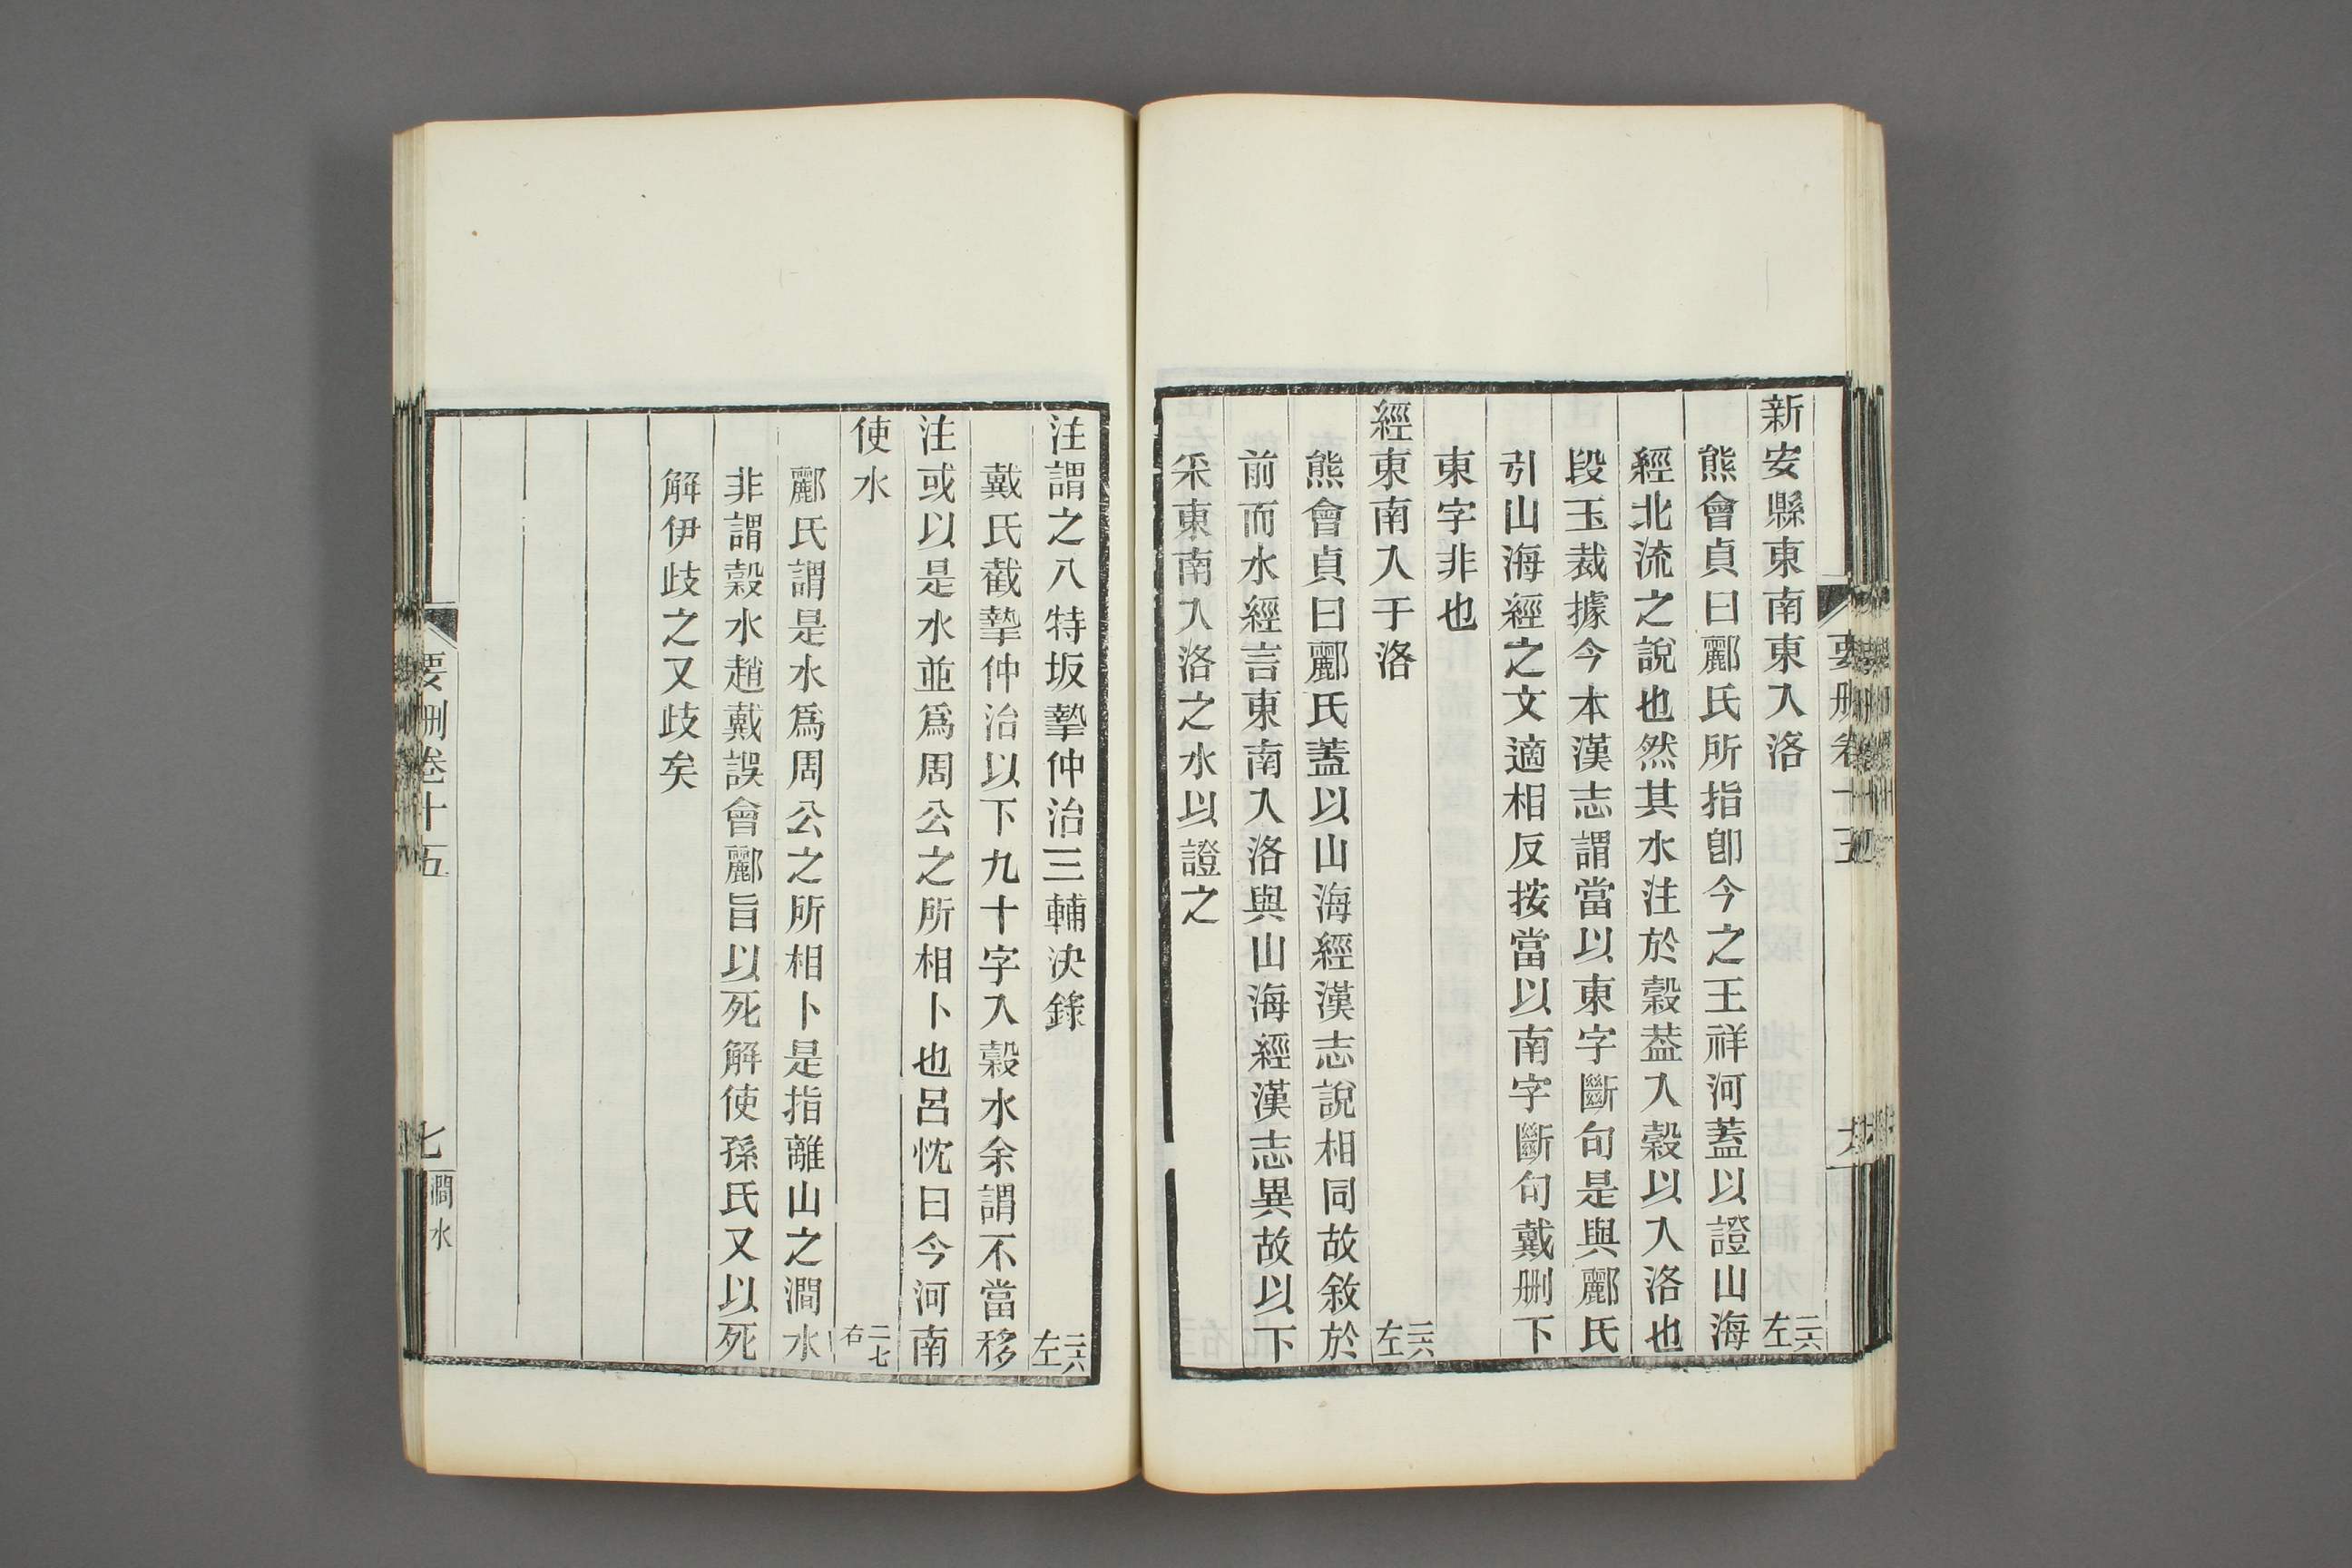 新安縣東南東入洛 二六左
熊會貞曰酈氏所指卽今之王祥河蓋以證山海
經北流之說也然其水注於穀葢入穀以入洛也
段玉裁據今本漢志謂當以東字斷句是與酈氏
引山海經之文適相反按當以南字斷句戴删下
東字非也
經東南入于洛 二六左
熊會貞曰酈氏蓋以山海經漢志說相同故敘於
前而水經言東南入洛與山海經漢志異故以下
釆東南入洛之水以證之
注謂之八特坂摯仲治三輔決錄 二六左
戴氏截摯仲治以下九十字入穀水余謂不當移
注或以是水並爲周公之所相卜也呂忱曰今河南
使水 二七右
酈氏謂是水爲周公之所相卜是指離山之澗水
非謂穀水趙戴誤會酈旨以死解使孫氏又以死
解伊歧之又歧矣
要删卷十五
七
澗水